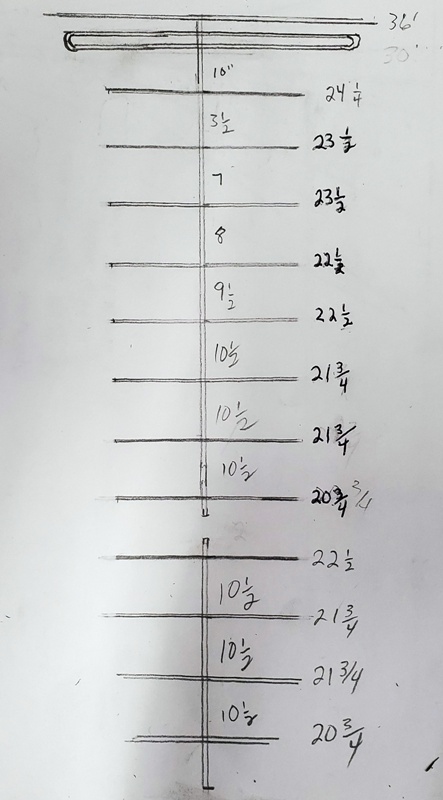 36'
30'
10"
24 1/4
3 1/2
23 1/2
7
23 1/2
8
22 1/2
9 1/2
22 1/2
10 1/2
21 3/4
10 1/2
21 3/4
10 1/2
20 3/4 3/4
22 1/2
10 1/2
21 3/4
10 1/2
21 3/4
10 1/2
20 3/4